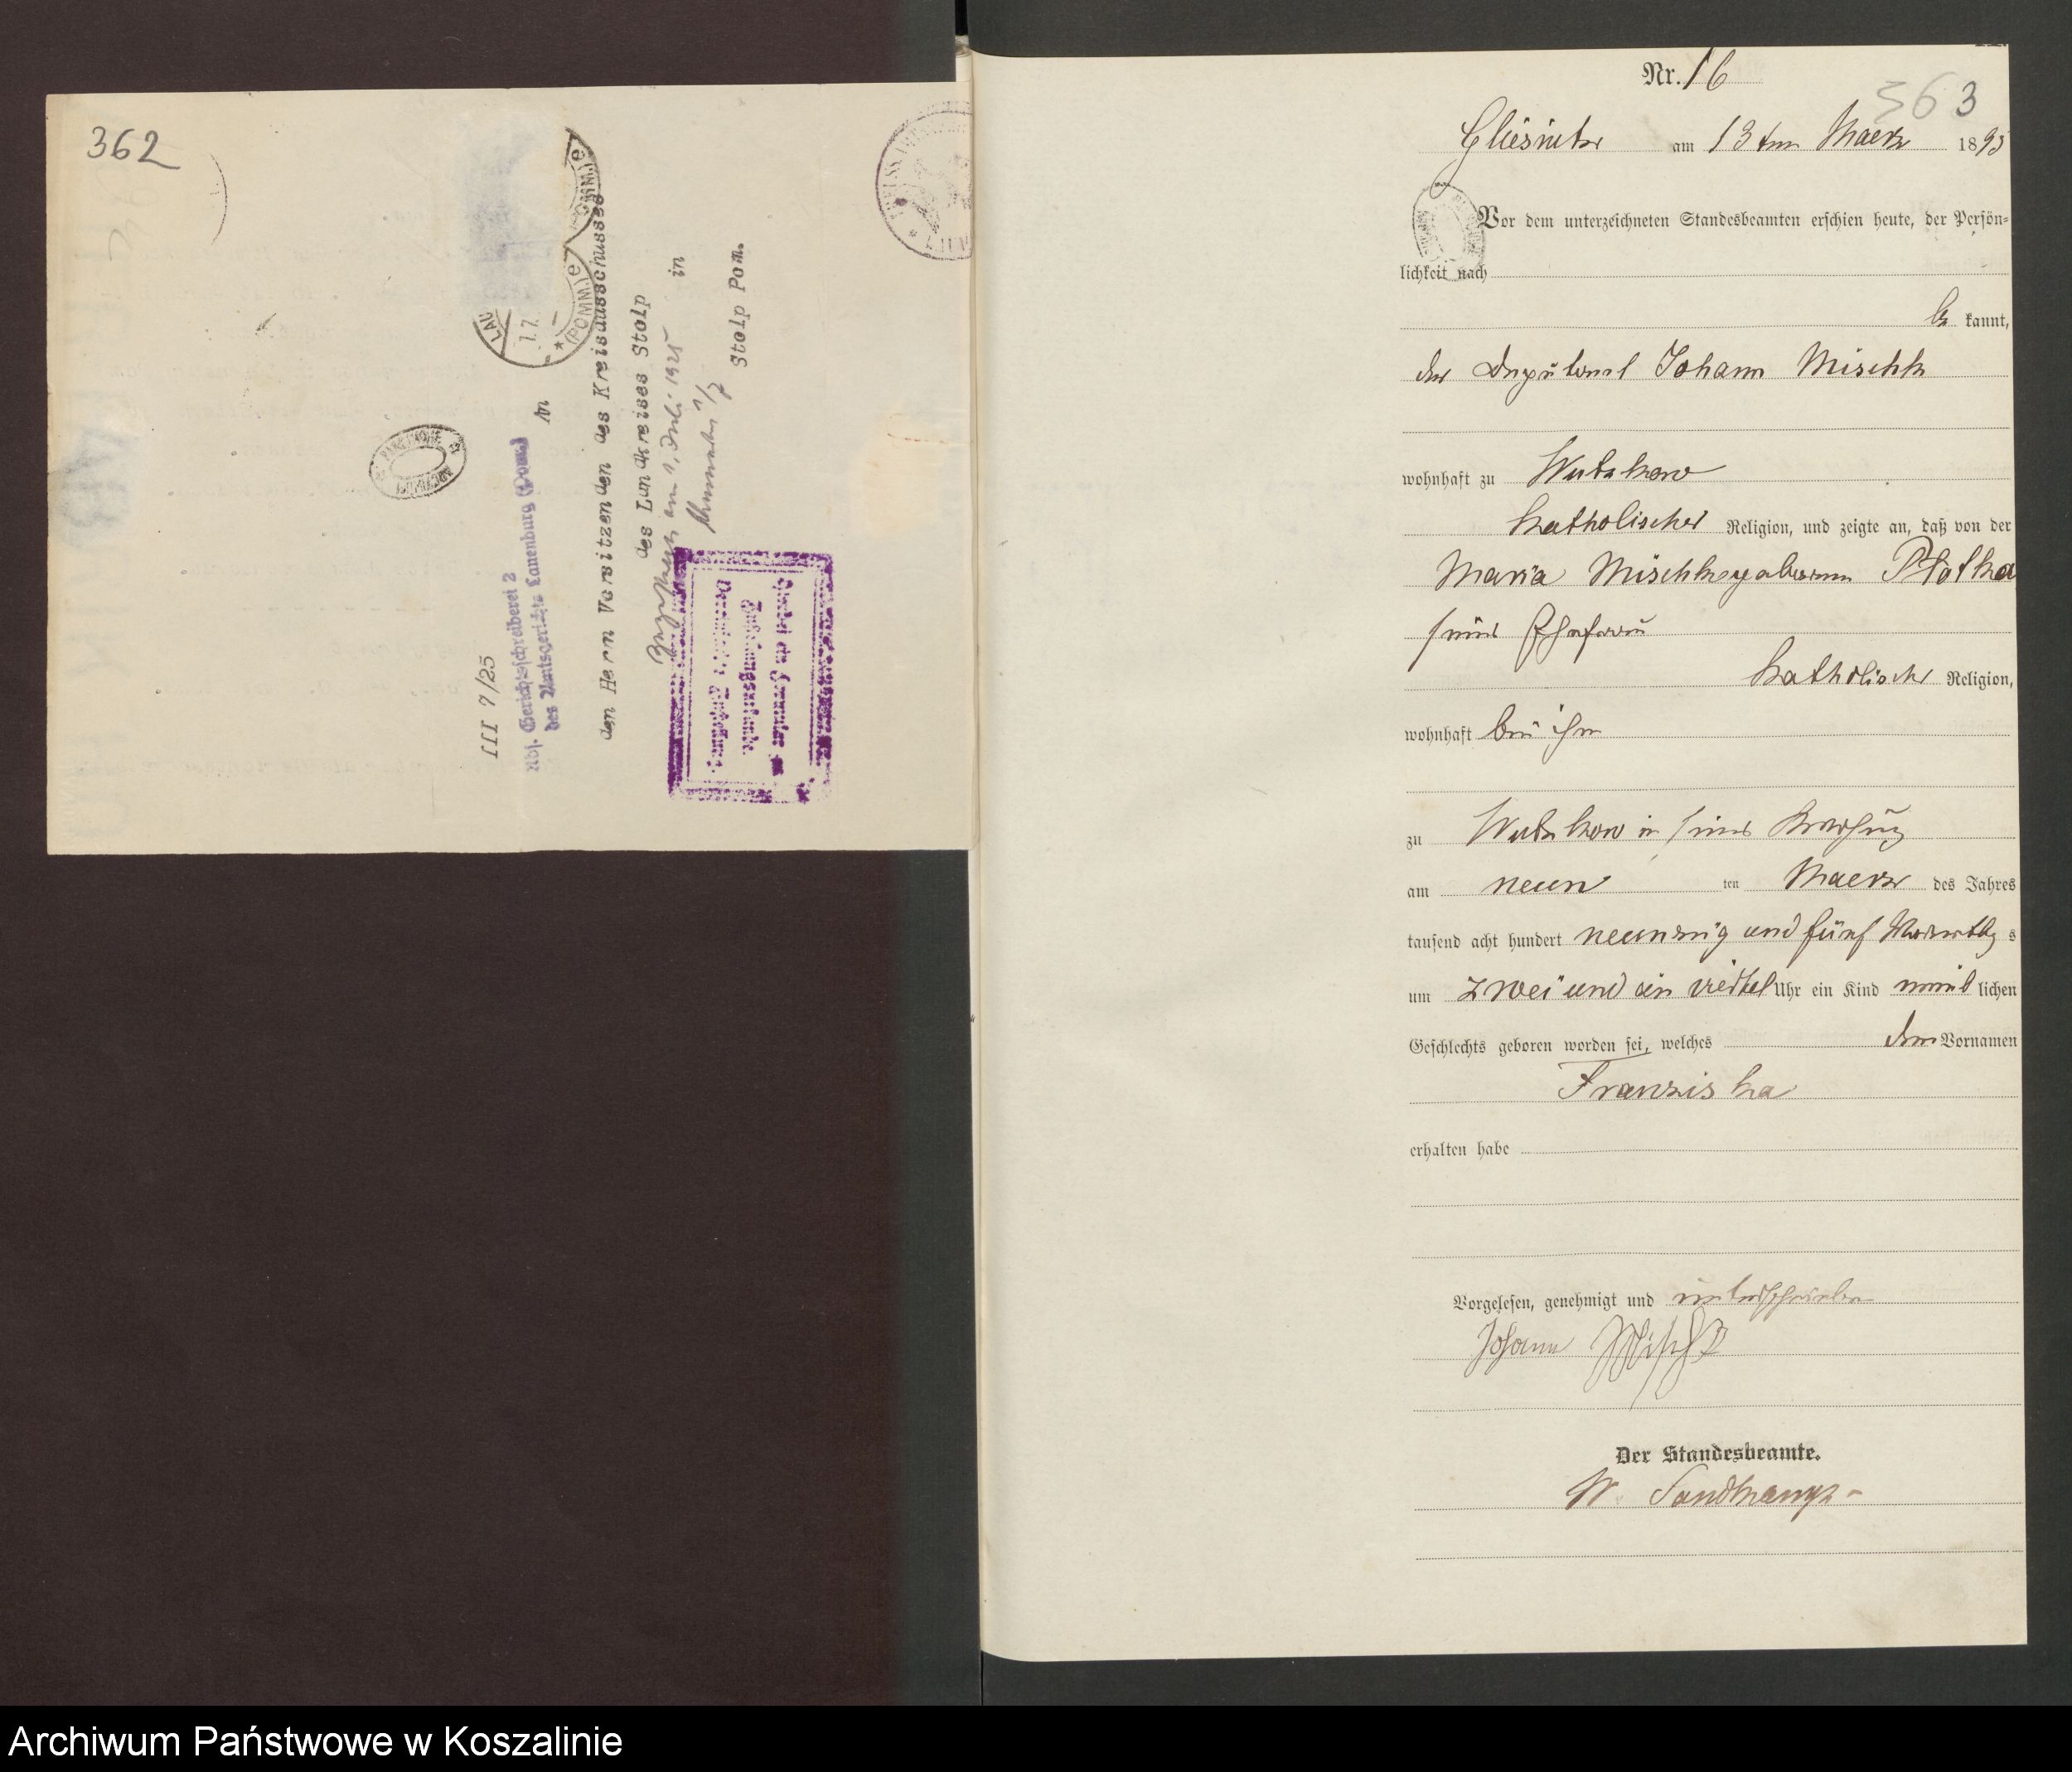 362
LAU
(POMM.) e
1.7.
III 7/25
Abs. Gerichtsschreiberei 2
des Amtsgerichts Lauenburg (Pom.)
An
den Herrn Vorsitzenden des Kreisausschusses
des Landkreises Stolp
in
Stolp Pom.
am 1. Juli 1925
Nr. 16
363
Gliesnitz am 13ten Maerz 1895
Vor dem unterzeichneten Standesbeamten erschien heute, der Persön-
lichkeit nach
be kannt,
der Deputant Johann Mischke
wohnhaft zu Wutzkow
katholischer Religion, und zeigte an, daß von der
Maria Mischke geborenen Plotka
seiner Ehefrau
katholischer Religion,
wohnhaft bei ihm
zu Wutzkow in seiner Behausung
am neun ten Maerz des Jahres
tausend acht hundert neunzig und fünf Vormittags
um zwei und ein viertel Uhr ein Kind weib lichen
Geschlechts geboren worden sei, welches den Vornamen
Franziska
erhalten habe
Vorgelesen, genehmigt und unterschrieben
Johann Mischke
Der Standesbeamte.
W.
Archiwum Państwowe w Koszalinie